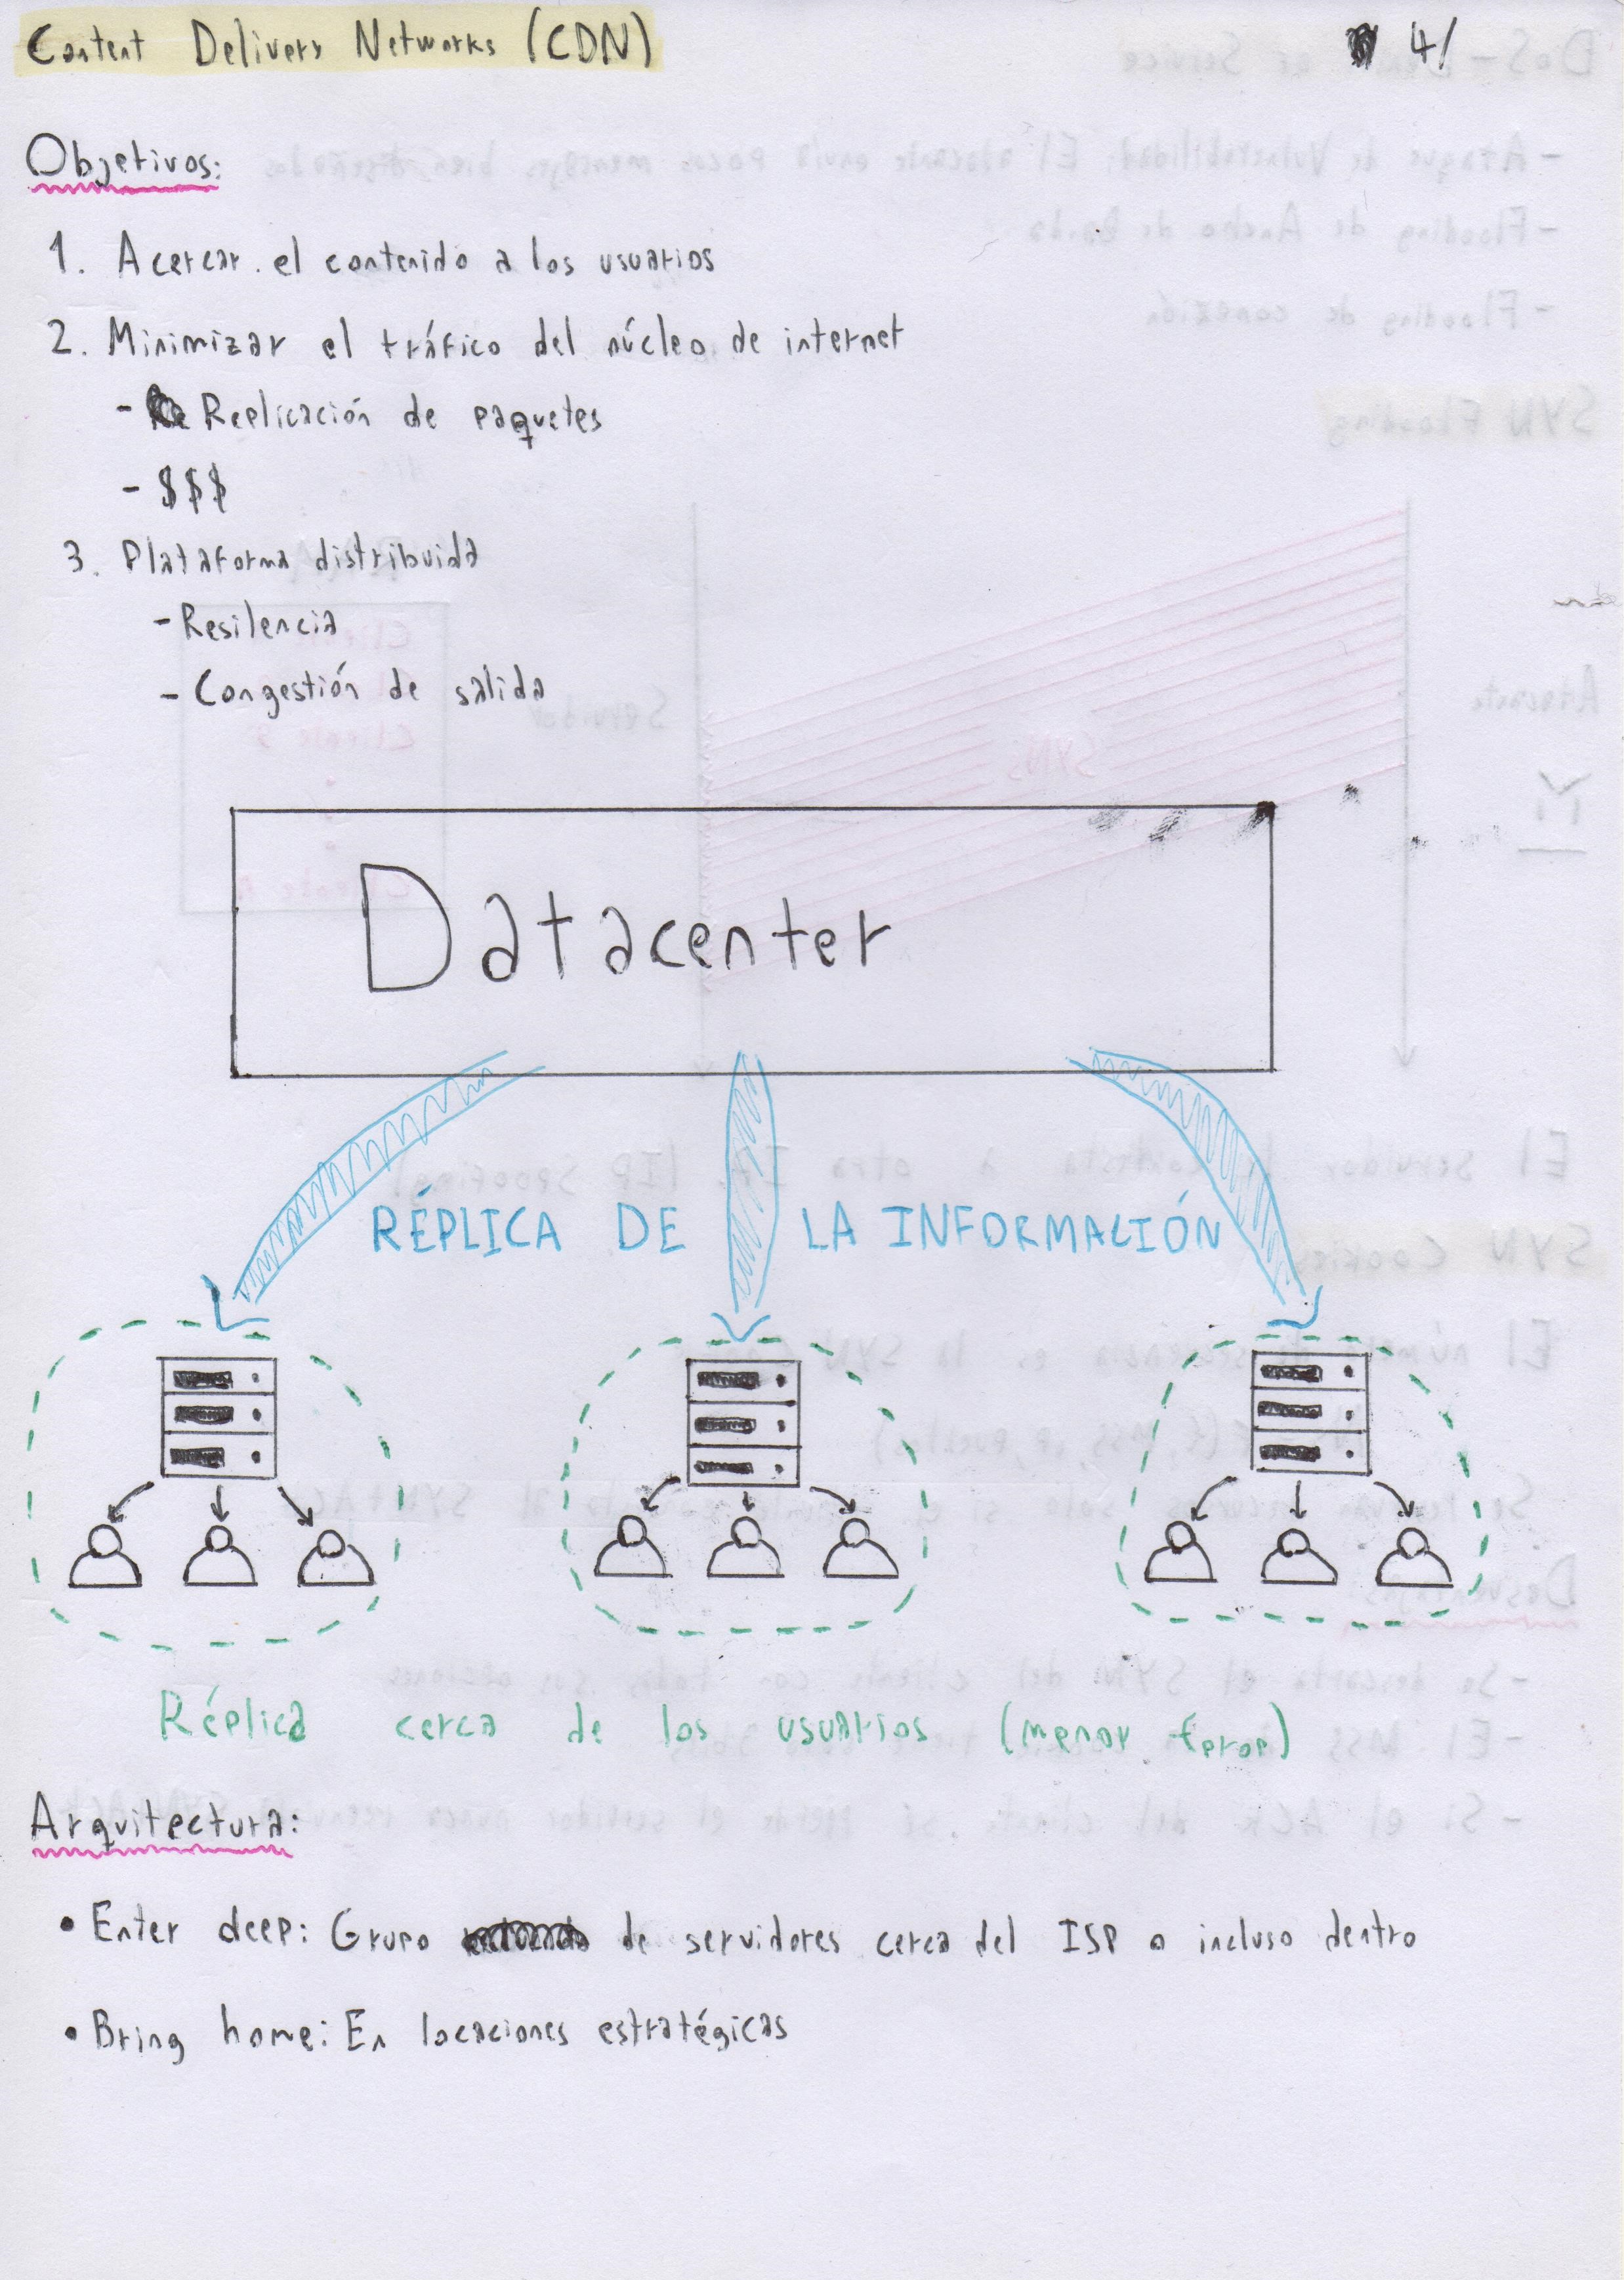 Content Delivery Networks (CDN)
4/
Objetivos:
1. Acercar el contenido a los usuarios
2. Minimizar el tráfico del núcleo de internet
- Replicación de paquetes
- $$$
3. Plataforma distribuida
- Resilencia
- Congestión de salida
Datacenter
RÉPLICA DE LA INFORMACIÓN
Réplica cerca de los usuarios (menor tprop)
Arquitectura:
• Enter deep: Grupo de servidores cerca del ISP o incluso dentro
• Bring home: En locaciones estratégicas